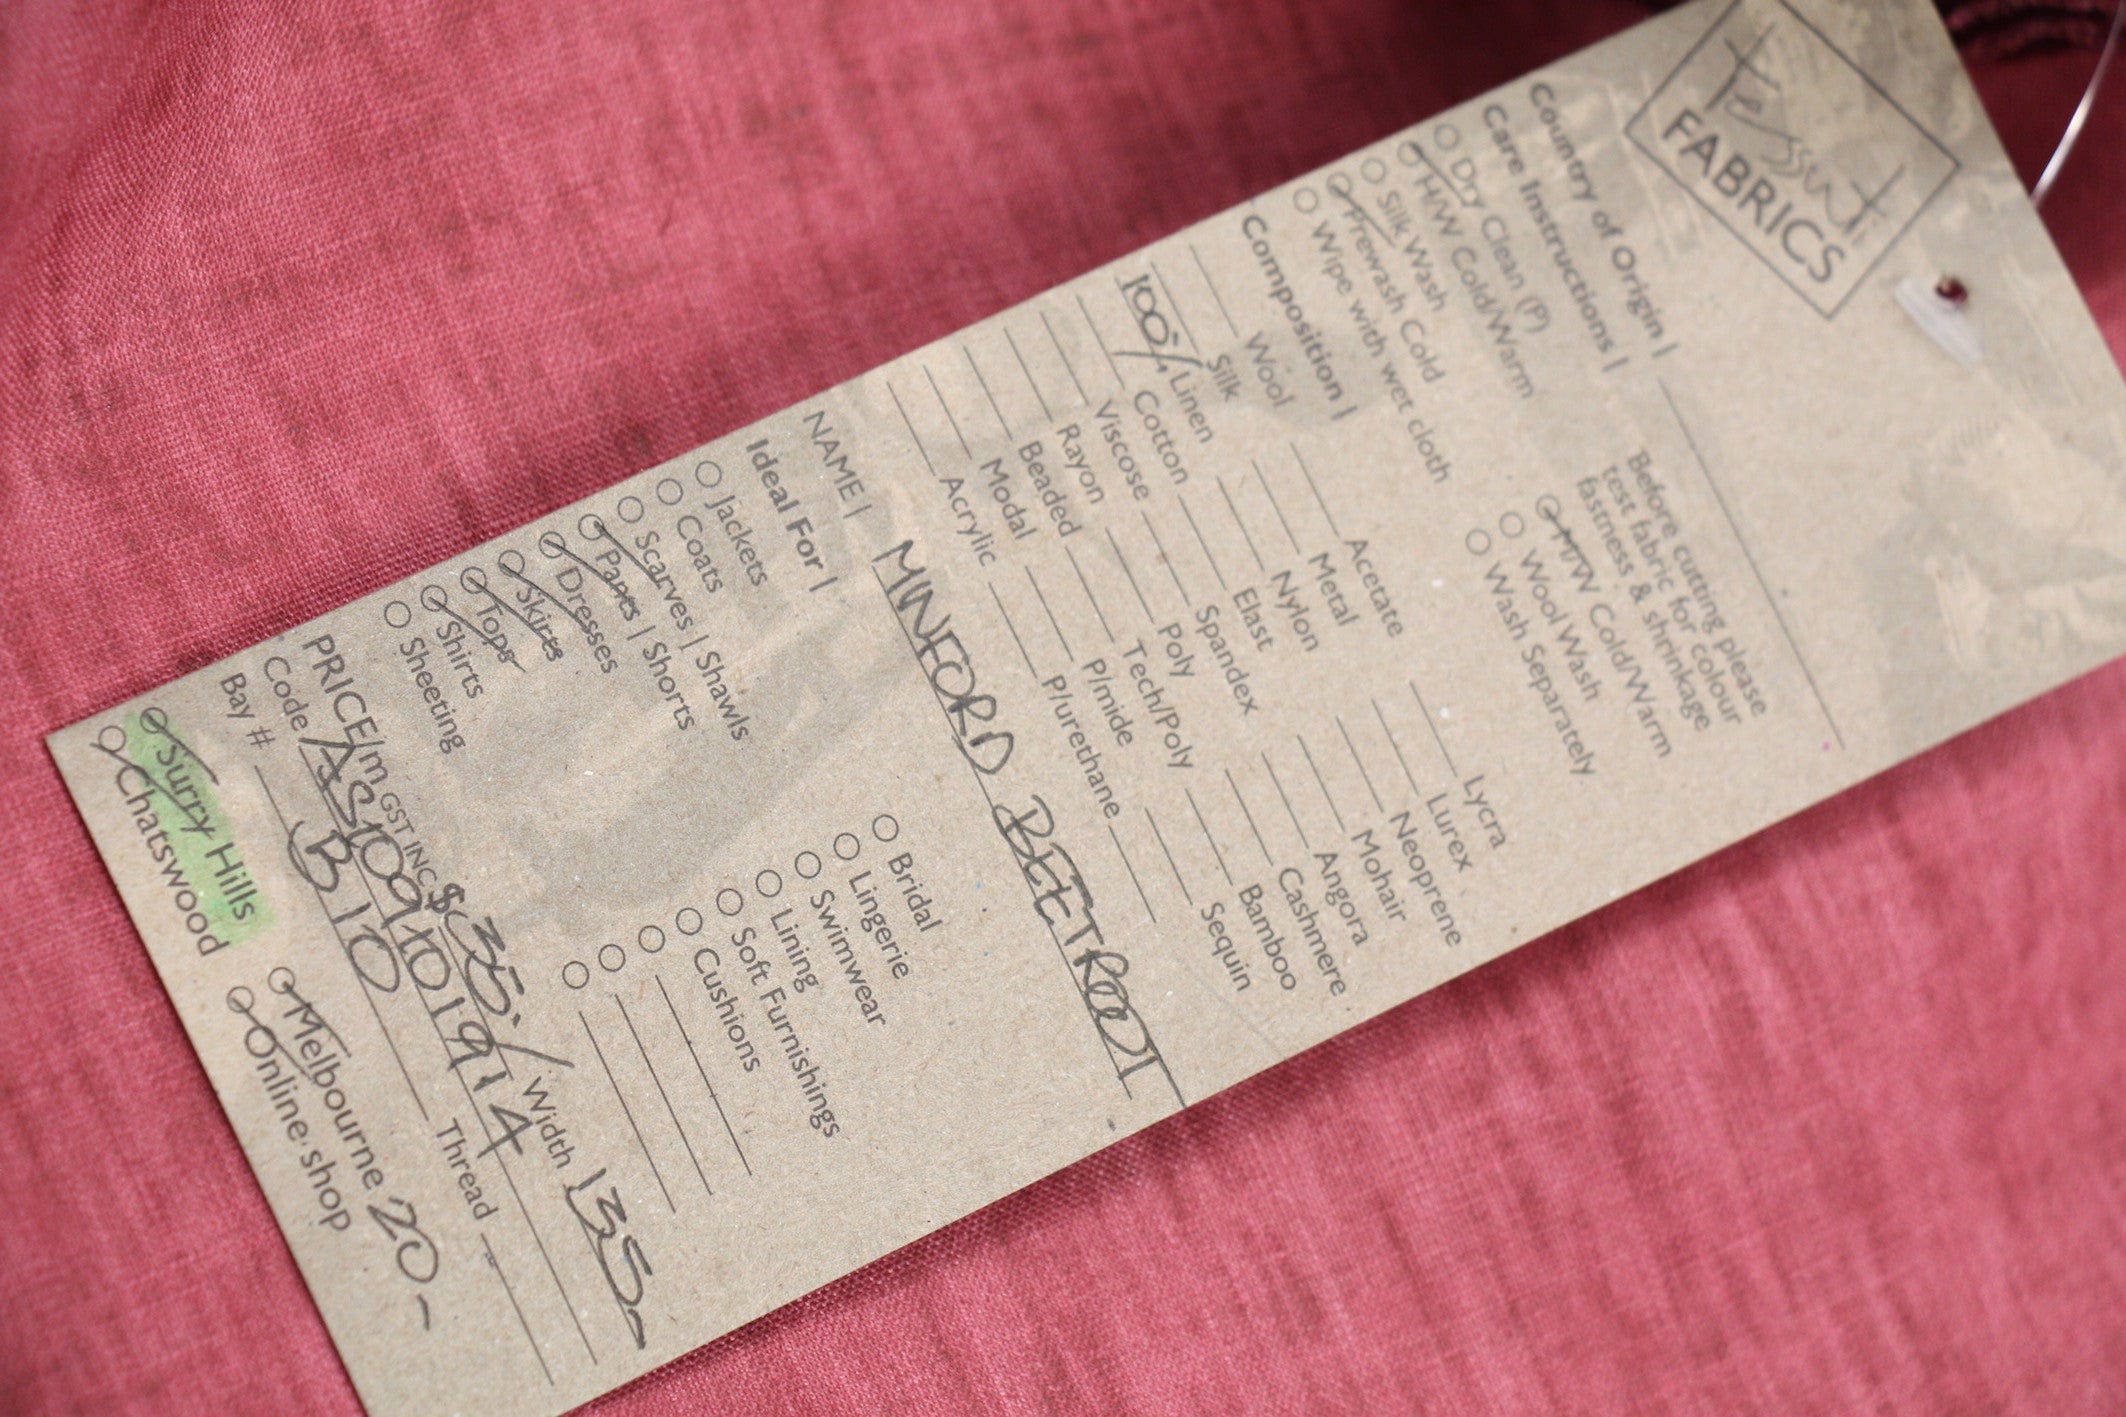 Tessuti
FABRICS
Country of Origin |
Care Instructions |
Dry Clean (P)
H/W Cold/Warm
Silk Wash
Prewash Cold
Wipe with wet cloth
Before cutting please
test fabric for colour
fastness & shrinkage
M/W Cold/Warm
Wool Wash
Wash Separately
Composition |
Wool Acetate Lycra
Silk Metal Lurex
100% Linen Nylon Neoprene
Cotton Elast Mohair
Viscose Spandex Angora
Rayon Poly Cashmere
Beaded Tech/Poly Bamboo
Modal P/mide Sequin
Acrylic P/urethane
NAME | MINFORD BEETROOT
Ideal For |
Jackets Bridal
Coats Lingerie
Scarves | Shawls Swimwear
Pants | Shorts Lining
Dresses Soft Furnishings
Skirts Cushions
Tops
Shirts
Sheeting
PRICE/m GST INC $ 35. Width 135-
Code
Bay # B10 Thread
Surry Hills Melbourne 20-
Chatswood Online shop